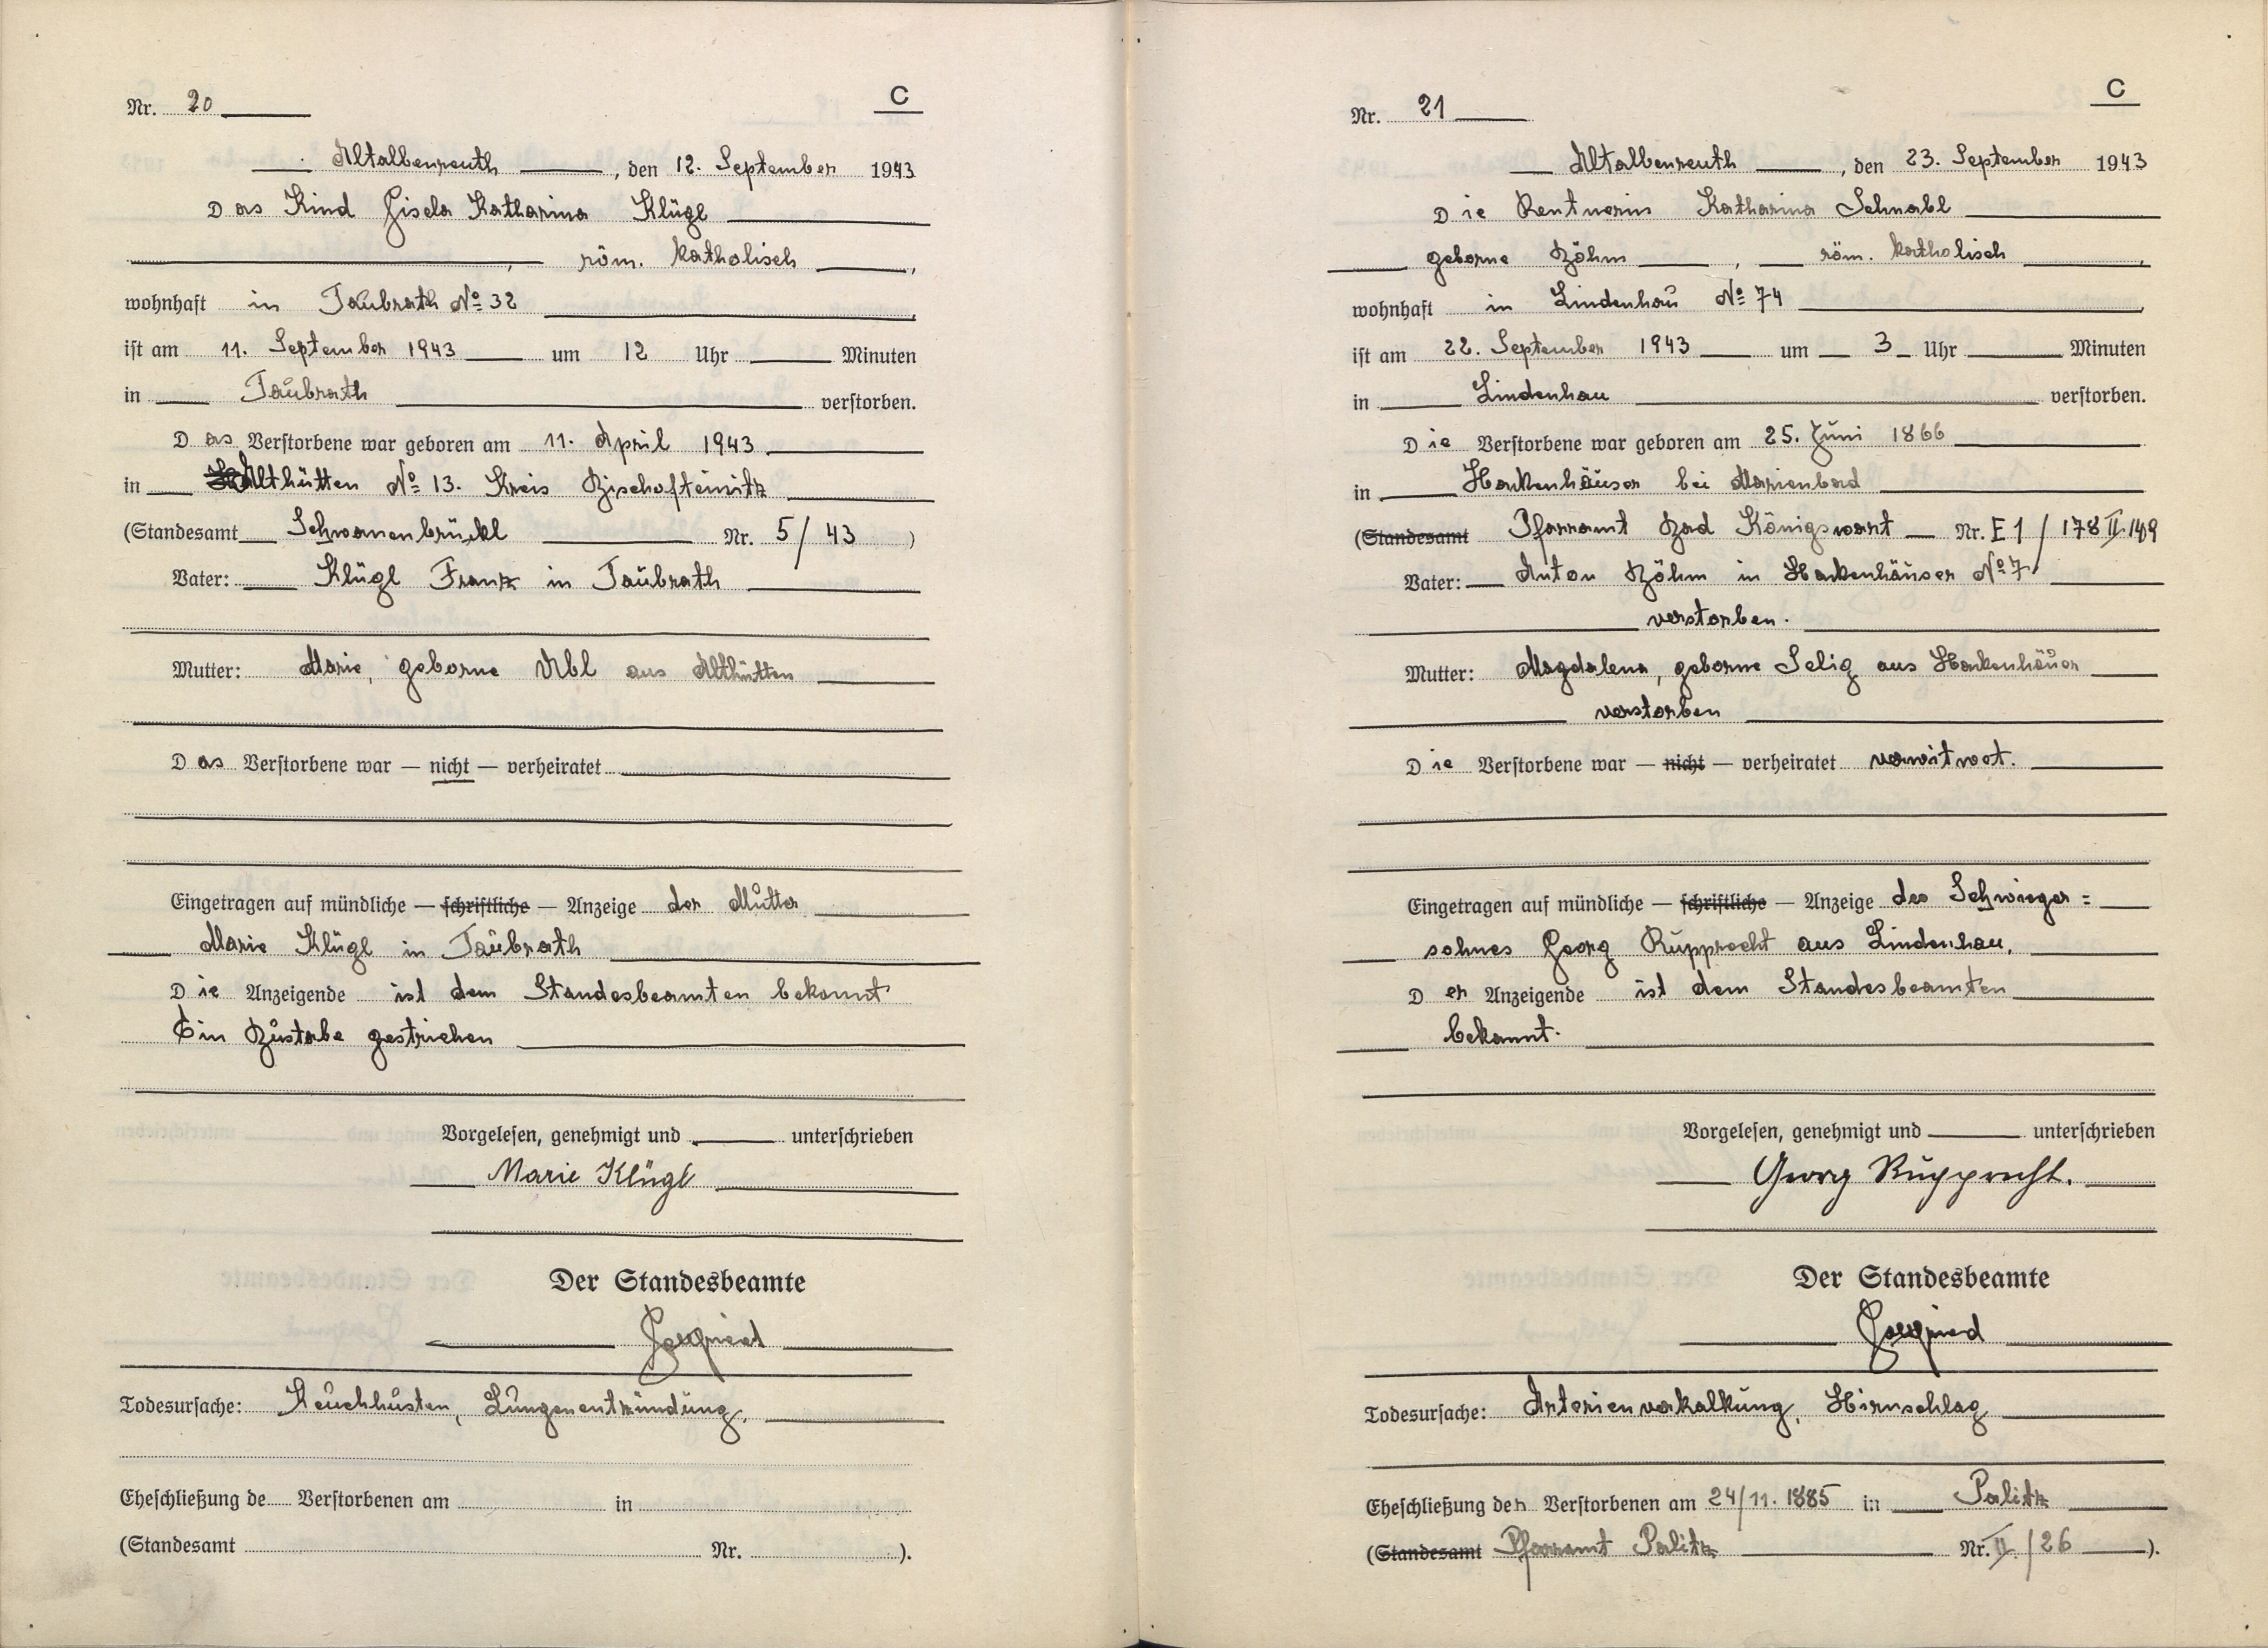 Nr. 20
C
Altalbenreuth, den 12. September 1943
Das Kind Gisela Katharina Klügl
, röm. katholisch,
wohnhaft in Taubrath No 32
ist am 11. September 1943 um 12 Uhr Minuten
in Taubrath verstorben.
Das Verstorbene war geboren am 11. April 1943
in Althütten No 13. Kreis Bischofteinitz
(Standesamt Schwanenbrückl Nr. 5/43)
Vater: Klügl Franz in Taubrath
Mutter: Marie, geborne Abl aus Althütten
Das Verstorbene war — nicht — verheiratet
Eingetragen auf mündliche — schriftliche — Anzeige der Mutter
Marie Klügl in Taubrath
Die Anzeigende ist dem Standesbeamten bekannt
Ein Bustabe gestrichen
Vorgelesen, genehmigt und unterschrieben
Marie Klügl
Der Standesbeamte
Todesursache: Keuchhusten, Lungenentzündung.
Eheschließung de Verstorbenen am in
(Standesamt Nr. ).
Nr. 21
C
Altalbenreuth, den 23. September 1943
Die Rentnerin Katharina Schnabl
geborne Böhm, röm. katholisch,
wohnhaft in Lindenhau No 74
ist am 22. September 1943 um 3 Uhr Minuten
in Lindenhau verstorben.
Die Verstorbene war geboren am 25. Juni 1866
in Hackenhäuser bei Marienbad
(Standesamt Pfarramt Bad Königswart Nr. E1/178 II./149
Vater: Anton Böhm in Hackenhäuser No 7.
verstorben.
Mutter: Magdalena, geborne Selig aus Hackenhäuser
verstorben
Die Verstorbene war — nicht — verheiratet verwitwet.
Eingetragen auf mündliche — schriftliche — Anzeige des Schwieger=
sohnes Georg Rupprecht aus Lindenhau.
Der Anzeigende ist dem Standesbeamten
bekannt.
Vorgelesen, genehmigt und unterschrieben
Georg Rupprecht.
Der Standesbeamte
Todesursache: Arterienverkalkung, Hirnschlag
Eheschließung der Verstorbenen am 24/11. 1885 in Palitz
(Standesamt Pfarramt Palitz Nr. II./26).